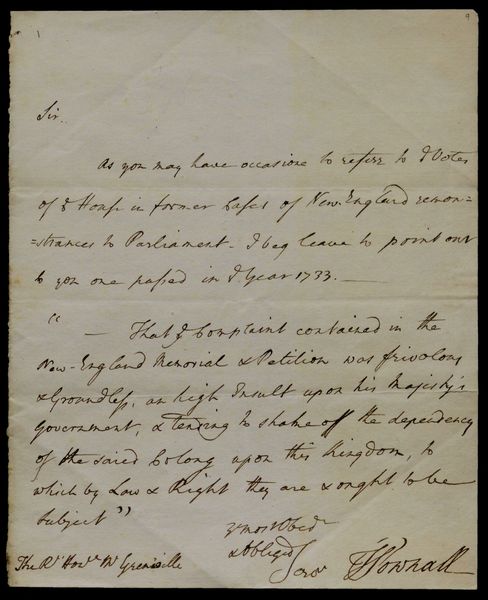 1
9
Sir.
As you may have occasione to referr to ye Votes
of ye House in former Cases of New-England remon=
=strances to Parliament - I beg leave to point out
to you one passed in ye Year 1733. —
" — That ye Complaint contained in the
New-England Memorial & Petition was frivolous
& Groundless, an high Insult upon his Majesty's
Government, & tending to shake off the dependency
of the saied Colony upon this Kingdom, to
which by Law & Right they are & ought to be
Subject"
yr most Obedt
& Obliged
Servt
TPownall
The Rt Honle Mr Grenville